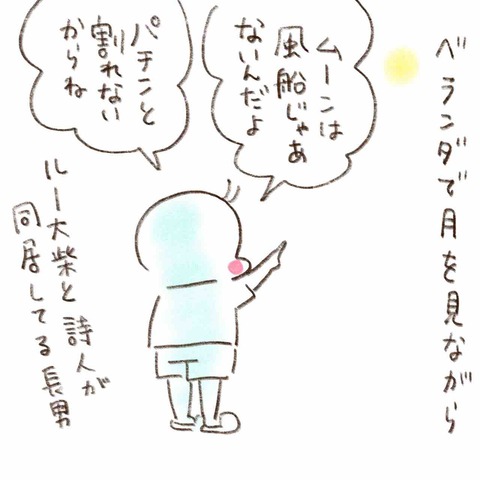 ベランダで月を見ながら
ムーンは
風船じゃあ
ないんだよ
パチンと
割れない
からね
ルー大柴と詩人が
同居してる長男